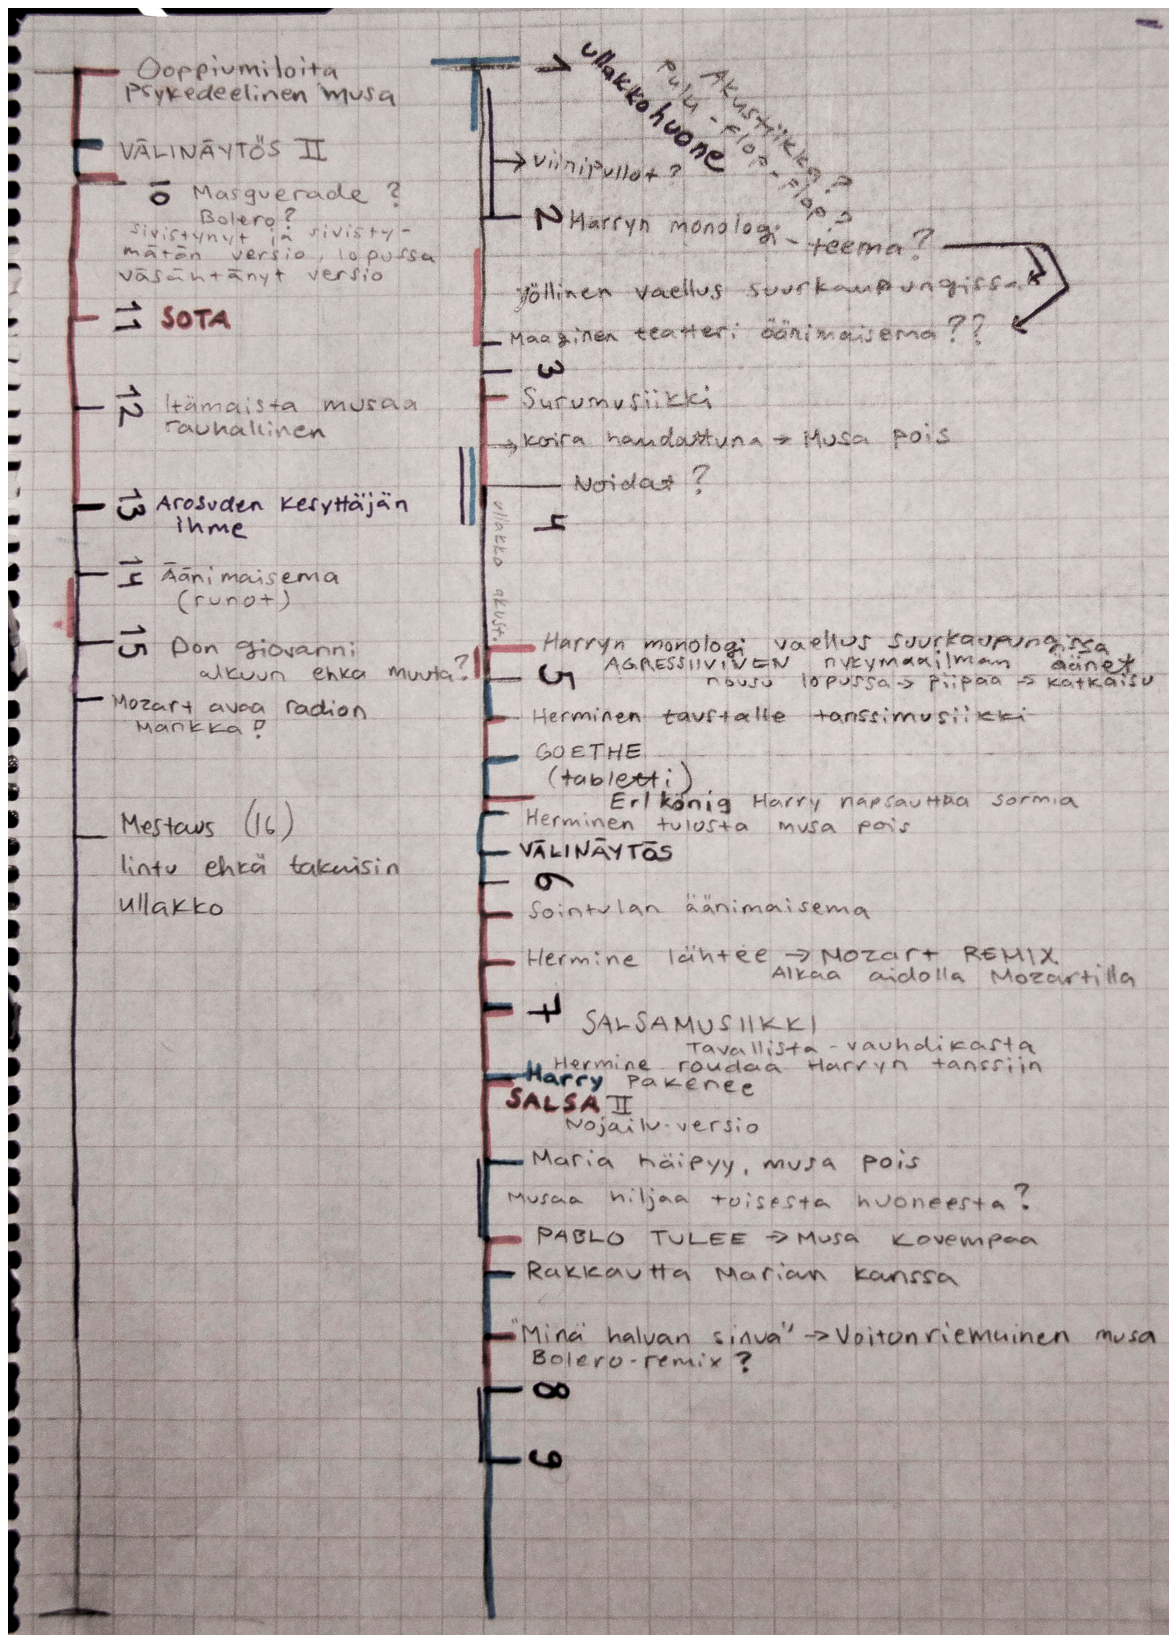 Ooppiumiloita
Psykedeelinen musa
VÄLINÄYTÖS II
10 Masquerade?
Bolero?
sivistynyt ja sivisty-
mätön versio, lopussa
väsähtänyt versio
11 SOTA
12 Itämaista musaa
rauhallinen
13 Arosuden kesyttäjän
ihme
14 Äänimaisema
(runot)
15 Don giovanni
alkuun ehkä muuta?
Mozart avaa radion
Markka?
Mestaus (16)
lintu ehkä takaisin
ullakko
ullakkohuone
Akustiikka?
Pulu-flop-flop?
viinipullot?
2 Harryn monologi-teema?
yöllinen vaellus suurkaupungissa
Maaginen teatteri äänimaisema??
3
Surumusiikki
→ koira haudattuna → Musa pois
Noidat?
4
ullakko akust.
Harryn monologi vaellus suurkaupungissa
AGRESSIIVINEN nykymaailman äänet
5 nousu lopussa → piipaa → katkaisu
Herminen taustalle tanssimusiikki
GOETHE
(tabletti)
Erlkönig Harry napsauttaa sormia
Herminen tulosta musa pois
VÄLINÄYTÖS
6
Sointulan äänimaisema
Hermine lähtee → Mozart REMIX
Alkaa aidolla Mozartilla
7
SALSAMUSIIKKI
Tavallista-vauhdikasta
Hermine roudaa Harryn tanssiin
Harry pakenee
SALSA II
Nojailu-versio
Maria häipyy, musa pois
Musaa hiljaa toisesta huoneesta?
PABLO TULEE → Musa kovempaa
Rakkautta Marian kanssa
"Minä haluan sinua" → Voitonriemuinen musa
Bolero-remix?
8
9